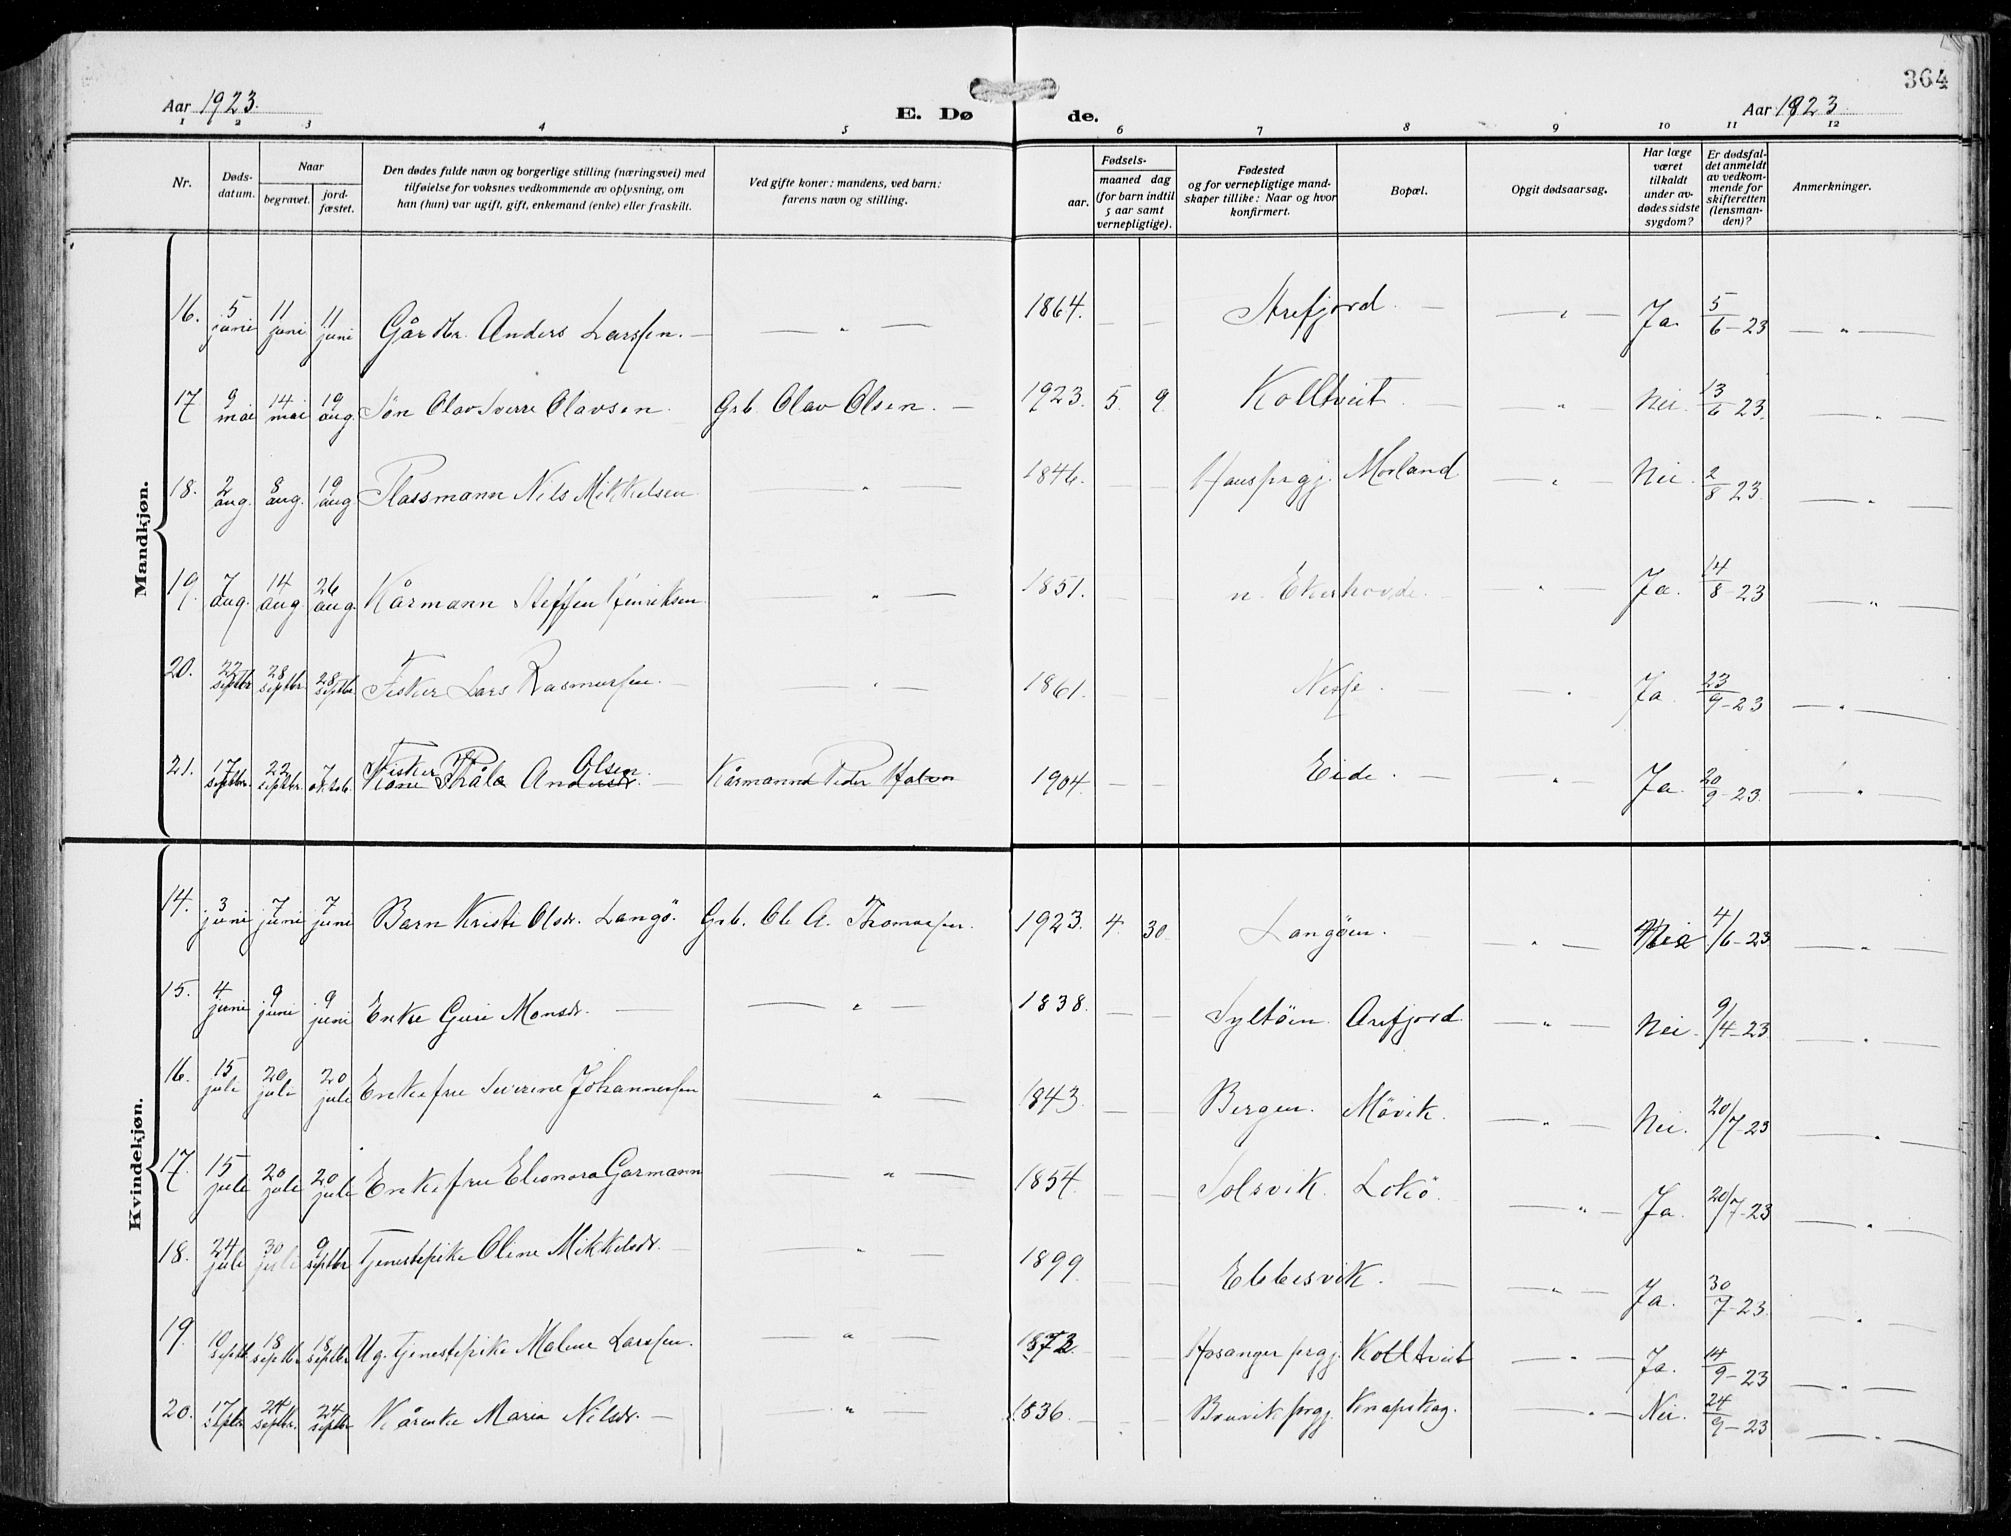 364
Aar 1923.
E. Dø de.
Aar 1923
1 2 3 4 5 6 7 8 9 10 11 12
Nr.
Døds-datum.
Naar
begravet.
jord-fæstet.
Den dødes fulde navn og borgerlige stilling (næringsvei) med
tilføielse for voksnes vedkommende av oplysning, om
han (hun) var ugift, gift, enkemand (enke) eller fraskilt.
Ved gifte koner: mandens, ved barn:
farens navn og stilling.
Fødsels-
aar. maaned dag
(for barn indtil
5 aar samt
vernepligtige).
Fødested
og for vernepligtige mand-
skaper tillike: Naar og hvor
konfirmert.
Bopæl.
Opgit dødsaarsag.
Har læge
været
tilkaldt
under av-
dødes sidste
sygdom?
Er dødsfal-
det anmeldt
av vedkom-
mende for
skifteretten
(lensman-
den)?
Anmerkninger.
Mandkjøn.
16. 5 juni 11 juni 11 juni Gårdbr. Anders Larssen. — — " — 1864. — — Arefjord. — — " — Ja. 5/6-23 — " —
17 9 mai 14 mai 19 aug. Søn Olav Sverre Olavsen. Grb. Olav Olsen. — 1923. 5. 9. Kolltveit. — — " — Nei. 13/6 23. — " —
18. 2 aug. 8 aug. 19 aug Plassmann Nils Mikkelsen — " — 1846. — — Hausprgj. Morland. — " — Nei. 2/8 23. — " —
19. 7 aug. 14 aug. 26 aug. Kårmann Steffen Henriksen. — " — 1851. — — n. Ekerhovde. — — " — Ja. 14/8-23 — " —
20. 22 septbr 28 septbr. 28 septbr. Fisker Lars Rasmussen. — — " — 1861. — — Nesse. — — " — Ja 23/9-23 — " —
21. 17 septbr. 22 septbr. 7 oktob. Fisker Olsen.
Kone Thåla Andersdr. — Kårmann Peder 1904. — — Eide. — — " — Ja. 20/9-23. — " —
Kvindekjøn.
14. 3 juni 7 juni 7 juni Barn Kristi Olsdr. Langö. Grb. Ole A. Thomassen. 1923. 4. 30. Langöen. — — " — Nei 4/6-23 — " —
15. 4 juni 9 juni 9 juni Enke Guri Monsdr. — — " — 1838. — — Syltöen. Arefjord. — " — Nei. 9/4-23 — " —
16. 15 juli 20 juli 20 juli Enkefru Severine Johannessen — " — 1843. — — Bergen. Mövik. — " — Nei. 20/7-23 — " —
17. 15 juli 20 juli 20 juli Enkefru Elionora Garmann — " — 1854. — — Solsvik. Lokö. — " — Ja. 20/7-23 — " —
18. 24 juli 30 juli 9 septbr Tjenestepike Oline Mikkelsdr. — — " — 1899 — — Ebbesvik. — — " — Ja. 30/7-23. — " —
19. septbr 18 septbr 18 septbr Ug. tjenestepike Malene Larssen. — " — 1872. — — Hosanger prgj. Kolltveit — " — Ja. 14/9-23 — " —
20. 17 septbr. 24 septbr. 24 septbr Kårenke Maria Nilsdr. — — " — 1836. — — prgj. Knapskog. — " — Nei. 24/9-23 — " —